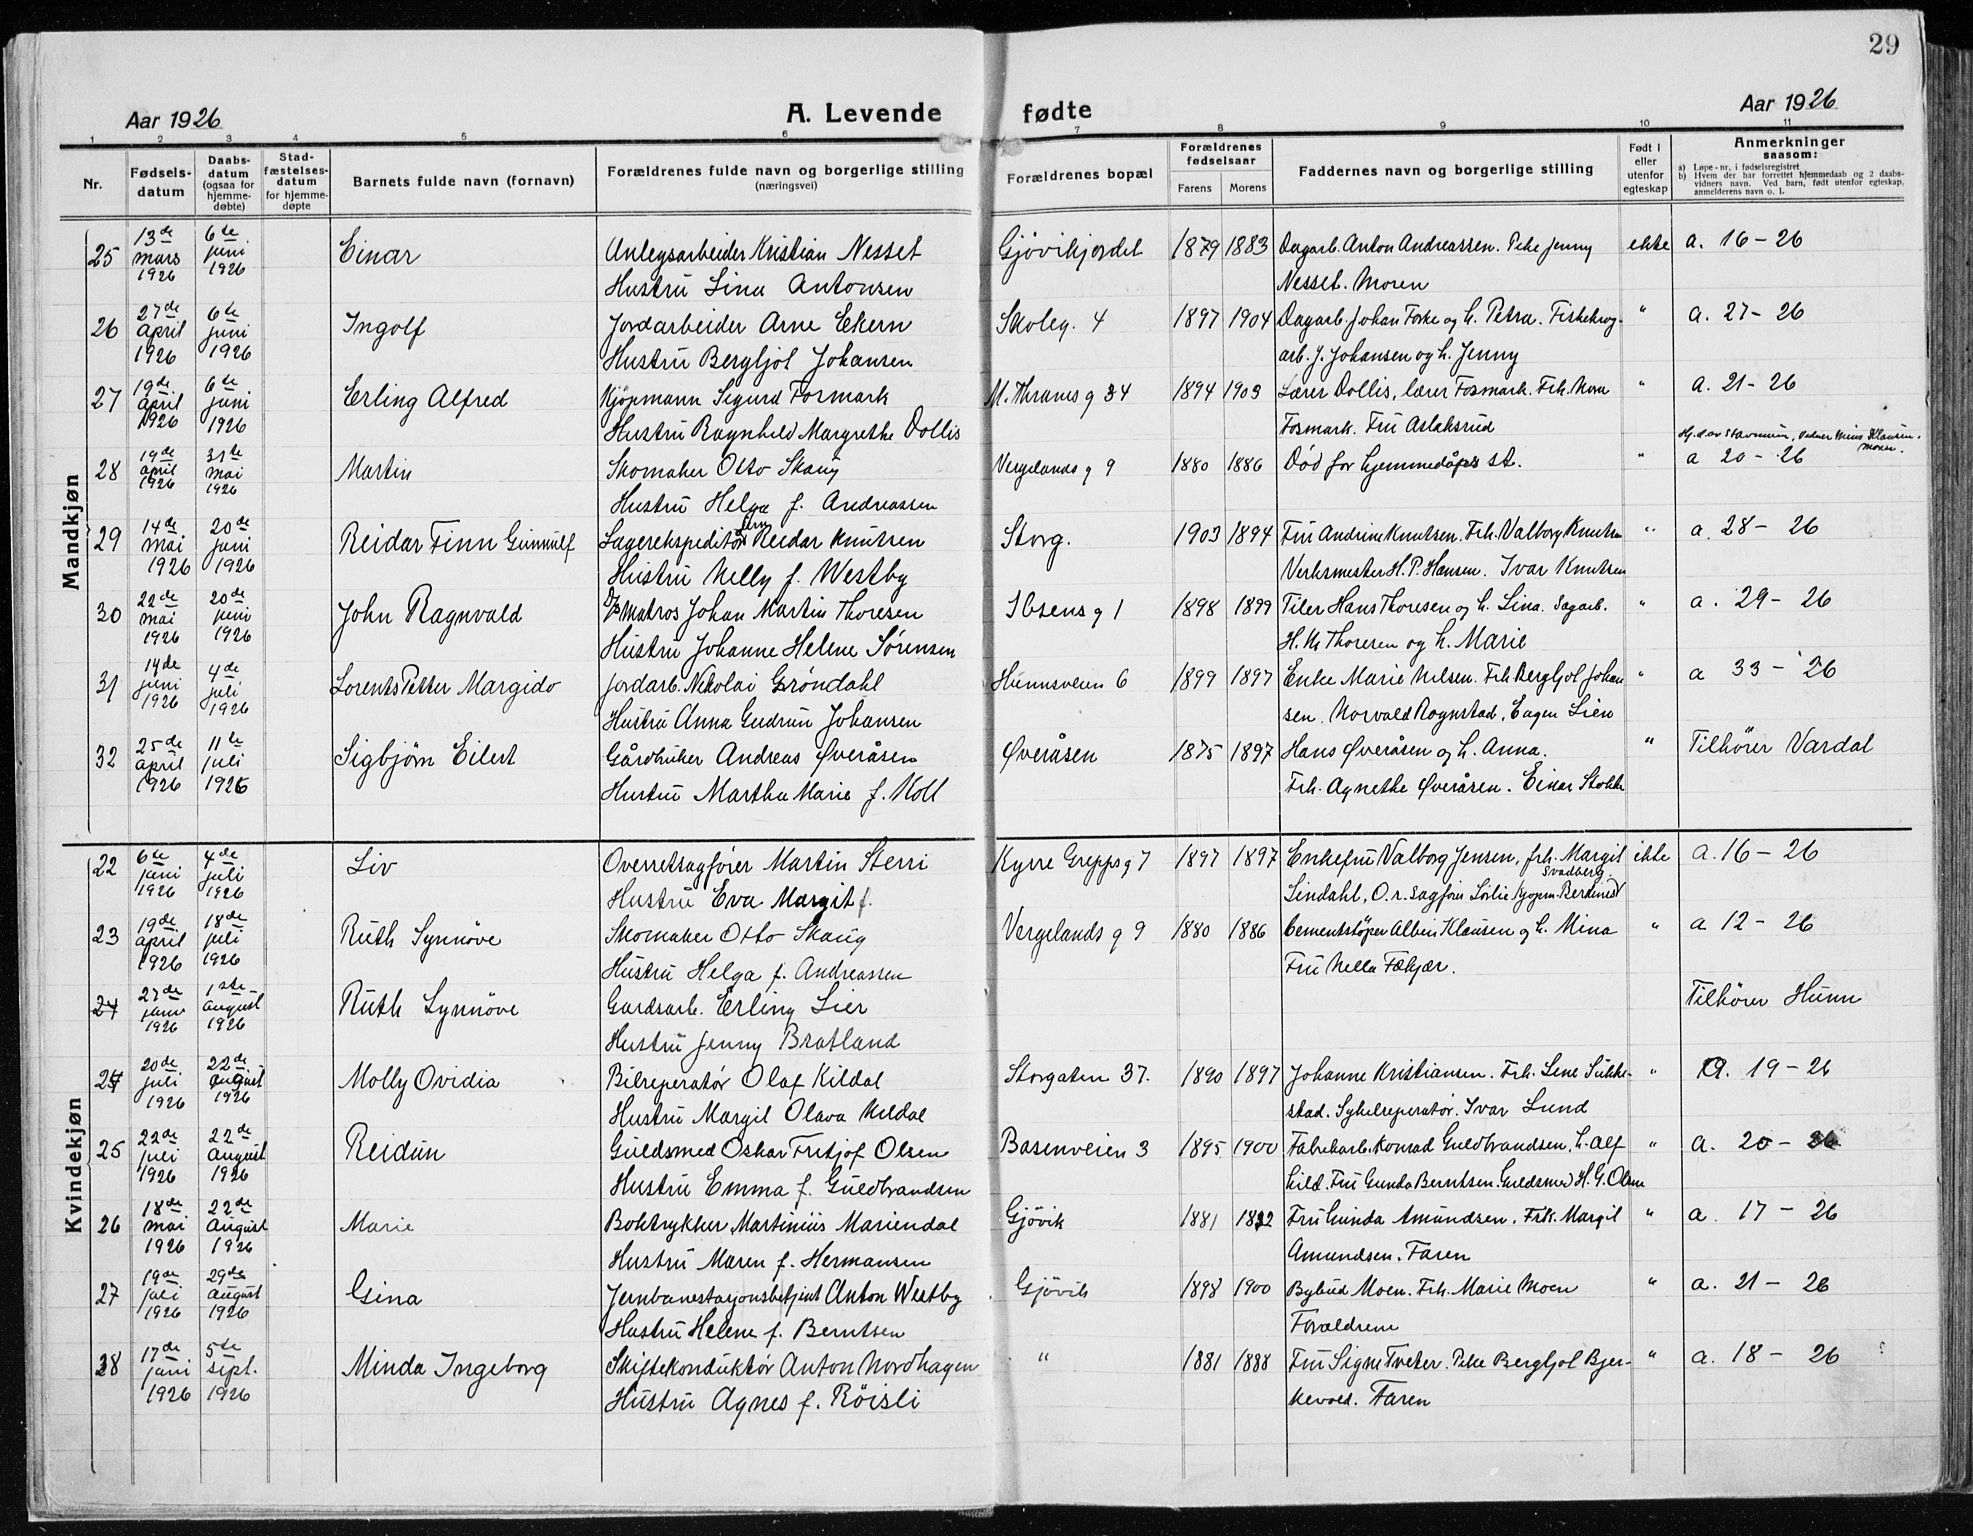 29
Aar 1926 A. Levende fødte Aar 1926
1 2 3 4 5 6 7 8 9 10 11
Nr.
Fødsels-
datum
Daabs-
datum
(ogsaa for
hjemme-
døbte)
Stad-
fæstelses-
datum
for hjemme-
døpte
Barnets fulde navn (fornavn)
Forældrenes fulde navn og borgerlige stilling
(næringsvei)
Forældrenes bopæl
Forældrenes
fødselsaar
Farens Morens
Faddernes navn og borgerlige stilling
Født i
eller
utenfor
egteskap
Anmerkninger
saasom:
a) Løpe-nr. i fødselsregistret
b) Hvem der har forrettet hjemmedaab og 2 daabs-
vidners navn. Ved barn, født utenfor egteskap,
anmelderens navn o. l.
Mandkjøn
25 13de mars 1926 6te juni 1926 Einar Anlegsarbeider Kristian Nesset Gjövikjordet 1879 1883 Dagarb. Anton Andreassen. Pike Jenny ekte a. 16 - 26
Hustru Lina Antonsen Nesset. Moren
26 27de april 1926 6te juni 1926 Ingolf Jordarbeider Arne Ekern Skoleg. 4 1897 1904 Dagarb. Johan Foske og h. Petra. Fiskekrog- " a. 27 - 26
Hustru Bergljot Johansen arb. J. Johansen og h. Jenny
27 19de april 1926 6te juni 1926 Erling Alfred Kjøpmann Sigurd Fosmark M. Thranes g 34 1894 1903 Lærer Dollis, lærer Fosmark. Frk. Mona " a. 21 - 26
Hustru Ragnhild Margrethe Dollis Fosmark. Fru Aslaksrud
28 19de april 1926 31te mai 1926 Martin Skomaker Otto Skaug Vergelands g 9 1880 1886 Død før hjemmedåpes st. " Hj.d. av Stavnum, Vidner Mina Klausen, Moren. a 20 - 26
Hustru Helga f. Andreassen
29 14de mai 1926 20de juni 1926 Reidar Finn Gunnulf Lagerekspeditør Finn Reidar Knutsen Storg. 1903 1894 Fru Andrine Knutsen. Frk. Valborg Knutsen " a. 28 - 26
Hustru Nelly f. Westby Verksmester H. P. Hansen. Ivar Knutsen
30 22de mai 1926 20de juni 1926 John Ragnvald Matros Johan Martin Thoresen Ibsens g 1 1898 1899 Tiler Hans Thoresen og h. Lina. Sagarb. " a. 29 - 26
Hustru Johanne Helene Sørensen H. M Thoresen og h. Marie
31 14de juni 1926 4de juli 1926 Lorents Petter Margido Jordarb. Nikolai Gröndahl Hunnsveien 6 1899 1897 Enke Marie Nilsen. Frk Bergljot Johan " a 33 - 26
Hustru Anna Gudrun Johansen sen. Norvald Rognstad, Eugen Lien
32 25de april 1926 11te juli 1926 Sigbjørn Eilert Gårdbruker Andreas Øveråsen Øveråsen 1875 1897 Hans Øveråsen og h. Anna. " Tilhører Vardal
Hustru Martha Marie f. Koll Frk. Agnethe Øveråsen. Einar Stokke
Kvindekjøn
22 6te juni 1926 4de juli 1926 Liv Overretsagfører Martin Sterri Kyrre Grepps g 7 1897 1897 Enkefru Valborg Jensen, frk. Margit Svadberg. ekte a. 16 - 26
Hustru Eva Margit f. Lindahl, O.r. sagfører Sørlie, kjøpm.
23 19de april 1926 18de juli 1926 Ruth Synnöve Skomaker Otto Skaug Vergelands g 9 1880 1886 Cementstøper Albin Klausen og h. Mina " a 12 - 26
Hustru Helga f. Andreassen Fru Nella Fækjær.
24 27de 1926 1ste august 1926 Ruth Synnöve Gardsarb. Erling Lier Tilhörer Hunn
Hustru Jenny Bratland
24 20de juli 1926 22de august 1926 Molly Ovidia Bilreperatör Olaf Kildal Storgaten 37. 1890 1897 Johanne Kristiansen. Frk. Lene Sukke- " a. 19 - 26
Hustru Margit Olava Kildal stad. Sykelreperatör. Ivar Lund
25 22de juli 1926 22de august 1926 Reidun Guldsmed Oskar Fritjof Olsen Bassenveien 3 1895 1900 Fabrikarb. Konrad Guldbrandsen, h. Alf " a. 20 - 26
Hustru Emma f. Guldbrandsen hild. Fru Gunda Berntsen. Guldsmed H. G. Olsen
26 18de mai 1926 22de August 1926 Marie Boktrykker Martinius Mariendal Gjövik 1881 1882 Fru Gunda Amundsen. Frk. Margit " a. 17 - 26
Hustru Maren f. Hermansen Amundsen. Faren
27 19de juli 1926 29de August 1926 Gina Jernbanestasjonsbetjent Anton Westby Gjövik 1898 1900 Bybud Moen. Frk. Marie Moen " a. 21 - 26
Hustru Helene f. Berntsen Forældrene
28 17de juni 1926 5te sept. 1926 Minda Ingeborg Skiftekonduktör Anton Nordhagen " 1881 1888 Fru Signe Tveter. Pike Bergljot Bjer- " a. 18 - 26
Hustru Agnes f. Röisli kevold. Faren